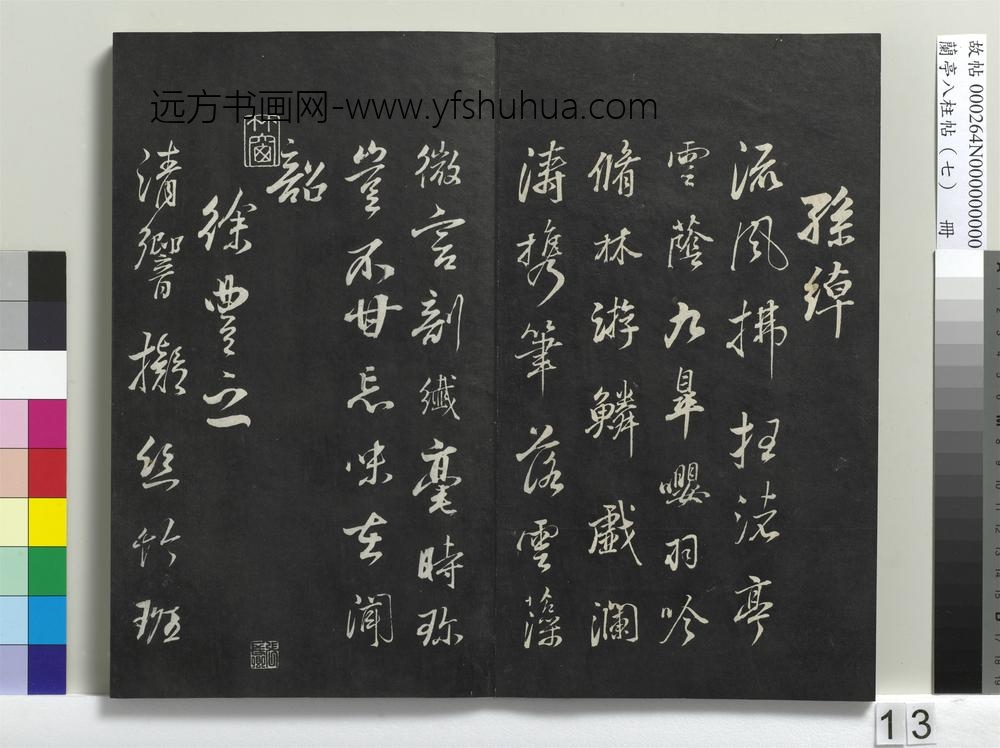 远方书画网-www.yfshuhua.com
孫綽
流風拂枉渚亭
雲蔭九皋嚶羽吟
脩林游鱗戲瀾
濤携筆落雲藻
微言剖纖毫時珍
豈不甘忘味在聞
韶
徐豐之
清響擬絲竹班
故帖 000264N000000000
蘭亭八柱帖(七) 冊
13